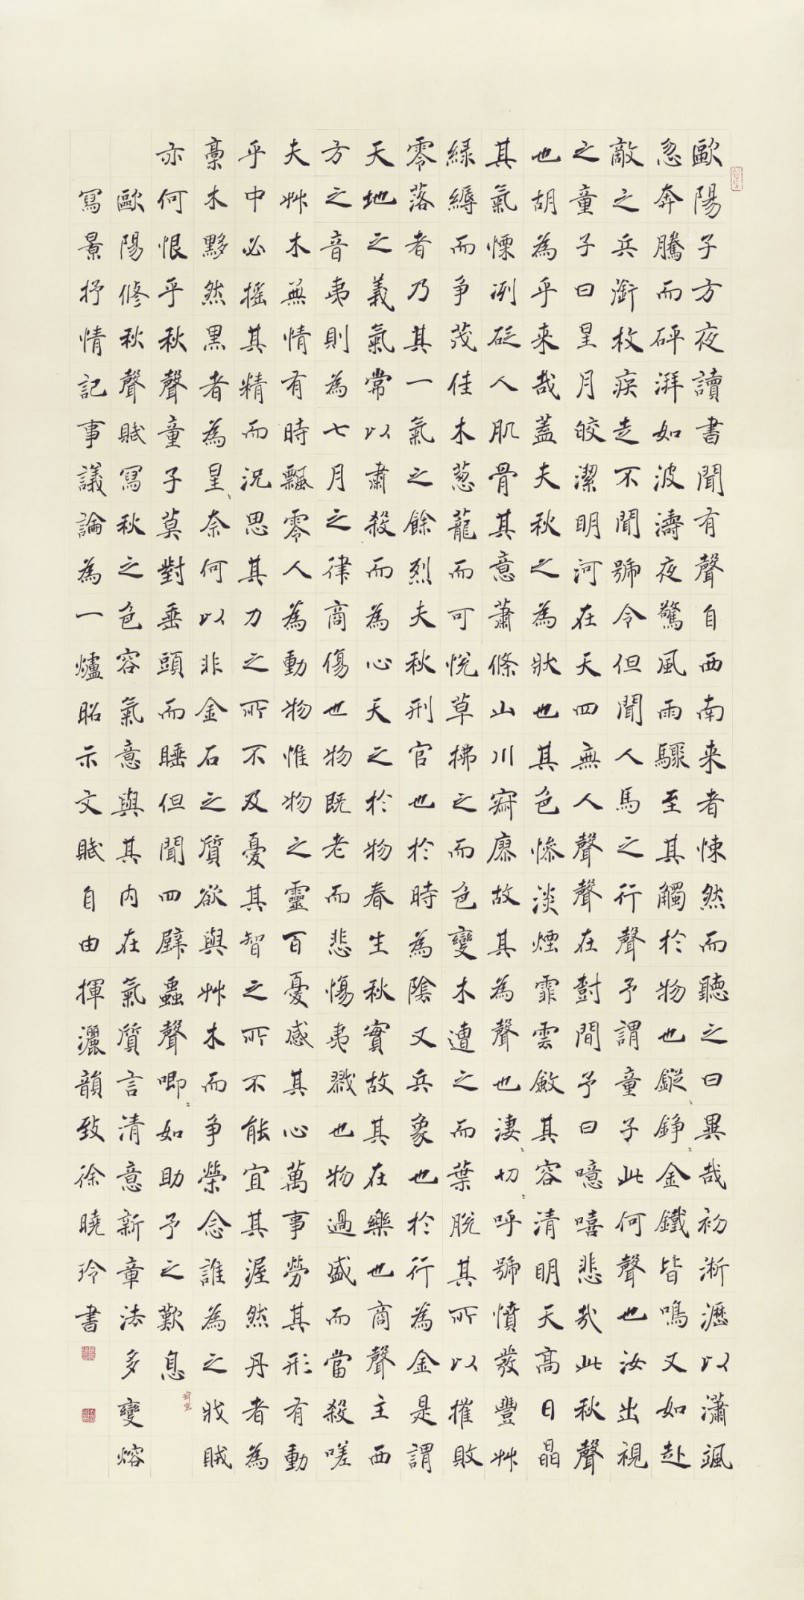 歐陽子方夜讀書聞有聲自西南来者悚然而聽之曰異哉初淅瀝以瀟颯
忽奔騰而砰湃如波濤夜驚風雨驟至其觸於物也鏦〻錚〻金鐵皆鳴又如赴
敵之兵銜枚疾走不聞號令但聞人馬之行聲予謂童子此何聲也汝出視
之童子曰星月皎潔明河在天四無人聲聲在樹間予曰噫嘻悲哉此秋聲
也胡為乎来哉蓋夫秋之為狀也其色慘淡煙霏雲斂其容清明天高日晶
其氣慄冽砭人肌骨其意蕭條山川寂寥故其為聲也淒〻切〻呼號憤發豐艸
綠縟而爭茂佳木葱蘢而可悅草拂之而色變木遭之而葉脫其所以摧敗
零落者乃其一氣之餘烈夫秋刑官也於時為陰又兵象也於行為金是謂
天地之義氣常以肅殺而為心天之於物春生秋實故其在樂也商聲主西
方之音夷則為七月之律商傷也物既老而悲傷夷戮也物過盛而當殺嗟
夫艸木無情有時飄零人為動物惟物之靈百憂感其心萬事勞其形有動
乎中必搖其精而況思其力之所不及憂其智之所不能宜其渥然丹者為
槁木黟然黑者為星〻奈何以非金石之質欲與艸木而爭榮念誰為之戕賊
亦何恨乎秋聲童子莫對垂頭而睡但聞四壁蟲聲唧〻如助予之歎息
歐陽修秋聲賦寫秋之色容氣意與其内在氣質言清意新章法多變熔
寫景抒情記事議論為一爐昭示文賦自由揮灑韻致徐曉玲書